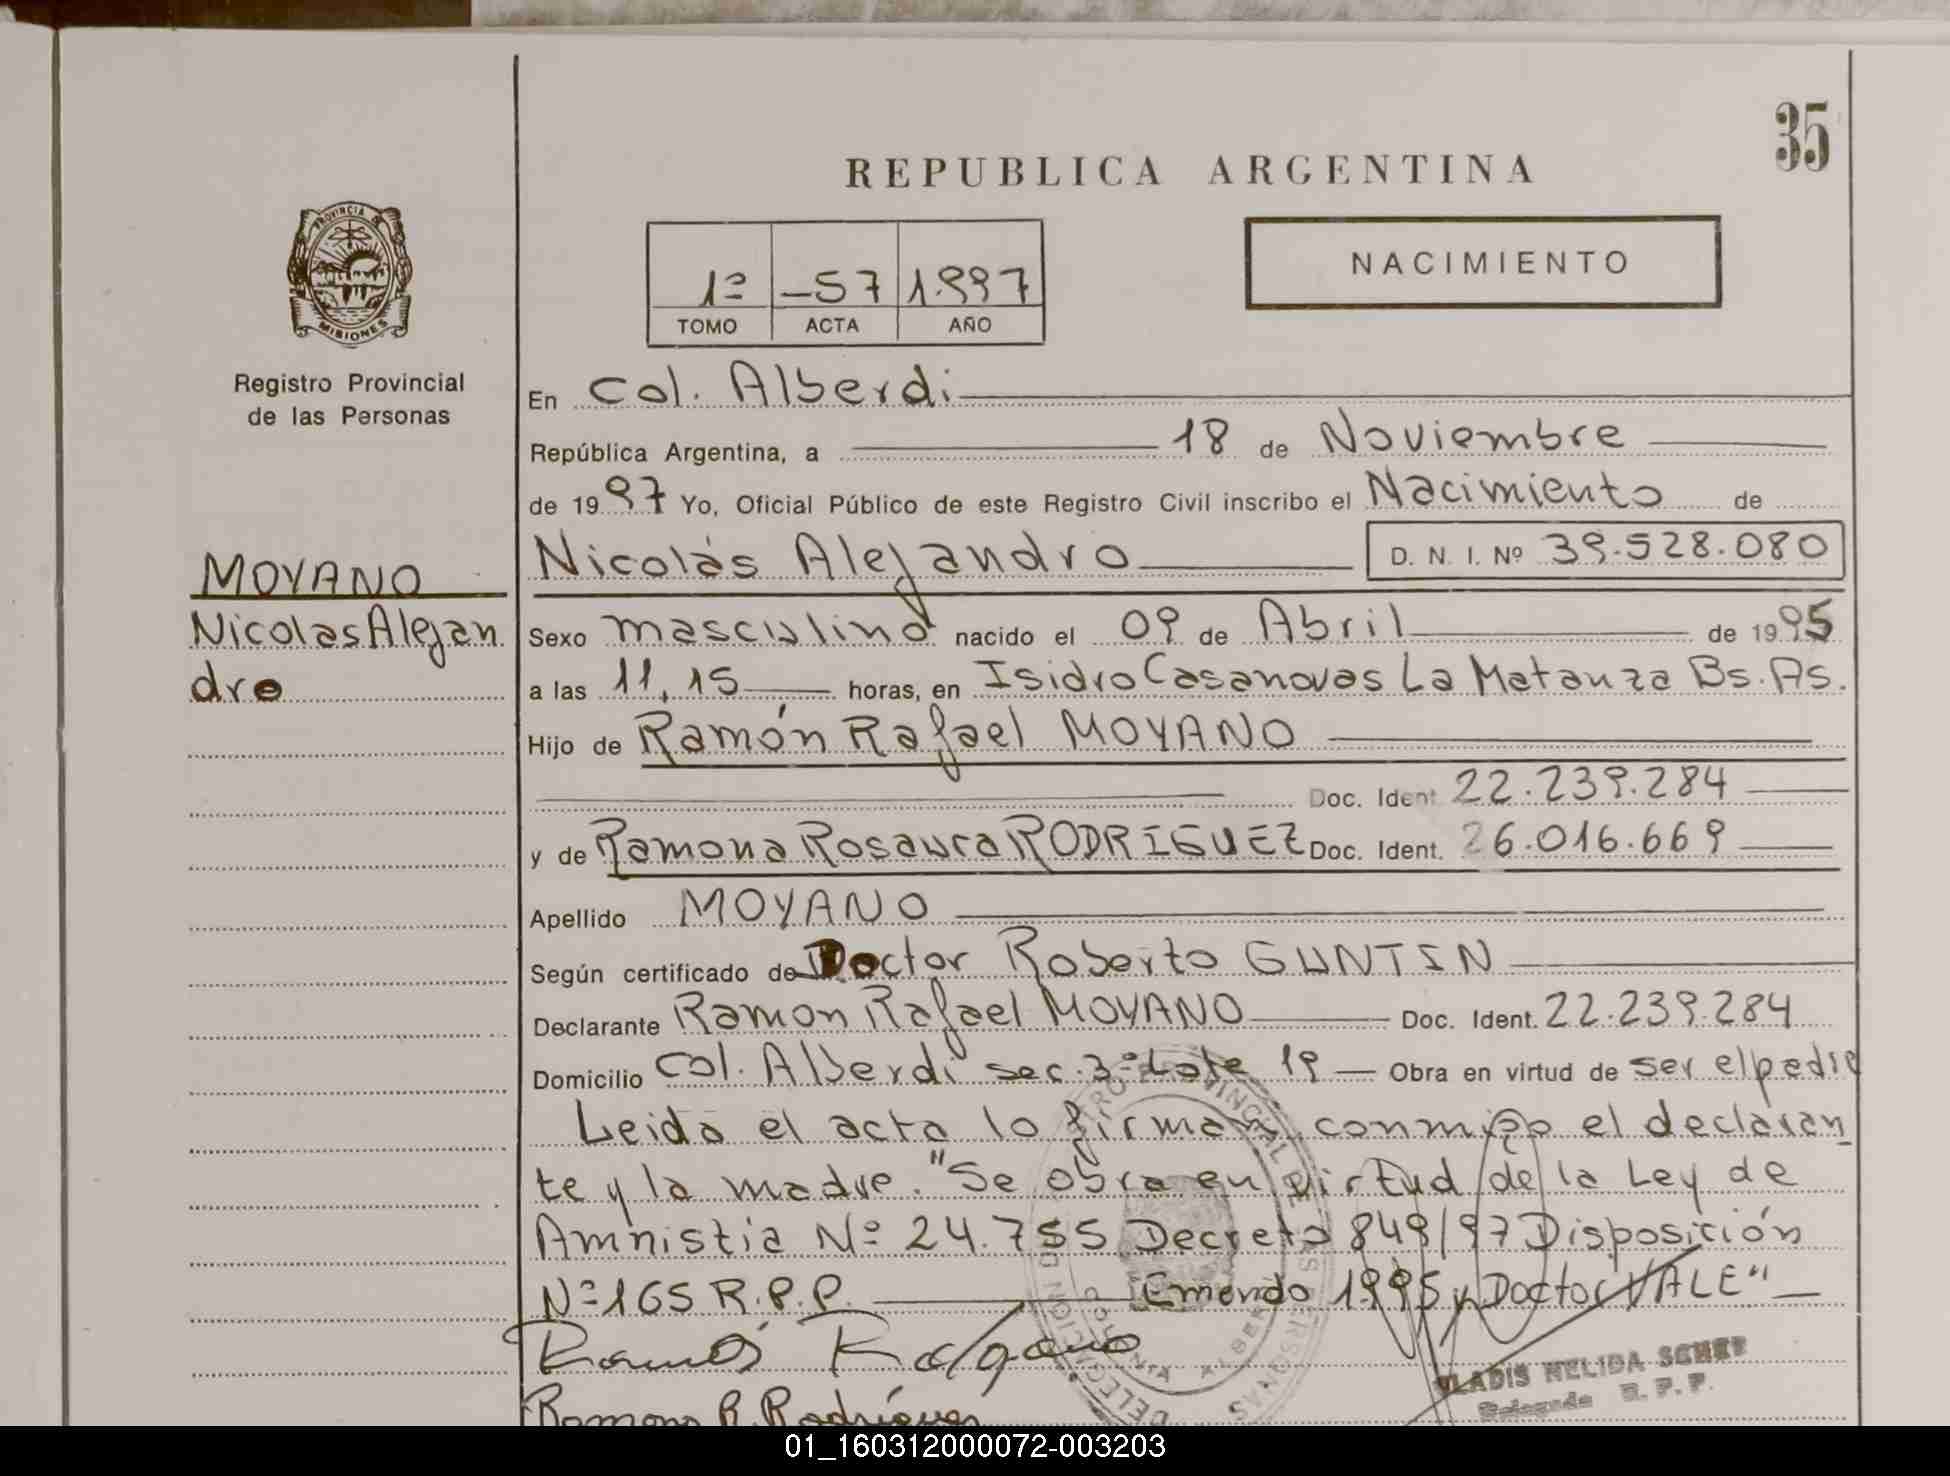 35
REPUBLICA ARGENTINA
NACIMIENTO
1º -57 1.997
TOMO ACTA AÑO
PROVINCIA DE
MISIONES
Registro Provincial
de las Personas
MOYANO
Nicolas Alejan
dro
En Col. Alberdi
República Argentina, a 18 de Noviembre
de 1997 Yo, Oficial Público de este Registro Civil inscribo el Nacimiento de
Nicolás Alejandro D. N. I. Nº 39.528.080
Sexo masculino nacido el 09 de Abril de 1995
a las 11,15 horas, en Isidro Casanovas La Matanza Bs. As.
Hijo de Ramón Rafael MOYANO
Doc. Ident. 22.239.284
y de Ramona Rosaura RODRIGUEZ Doc. Ident. 26.016.669
Apellido MOYANO
Según certificado de Doctor Roberto GUNTIN
Declarante Ramon Rafael MOYANO Doc. Ident. 22.239.284
Domicilio Col. Alberdi sec. 3º Lote 19 Obra en virtud de ser el padre
Leida el acta lo firman conmigo el declaran
te y la madre. "Se obra en virtud de la Ley de
Amnistia Nº 24.755 Decreto 849/97 Disposición
Nº 165 R.P.P. Emendo 1995 y Doctor VALE"
Ramona R. Rodríguez
NELIDA
Delegada R. P. P.
01_160312000072-003203